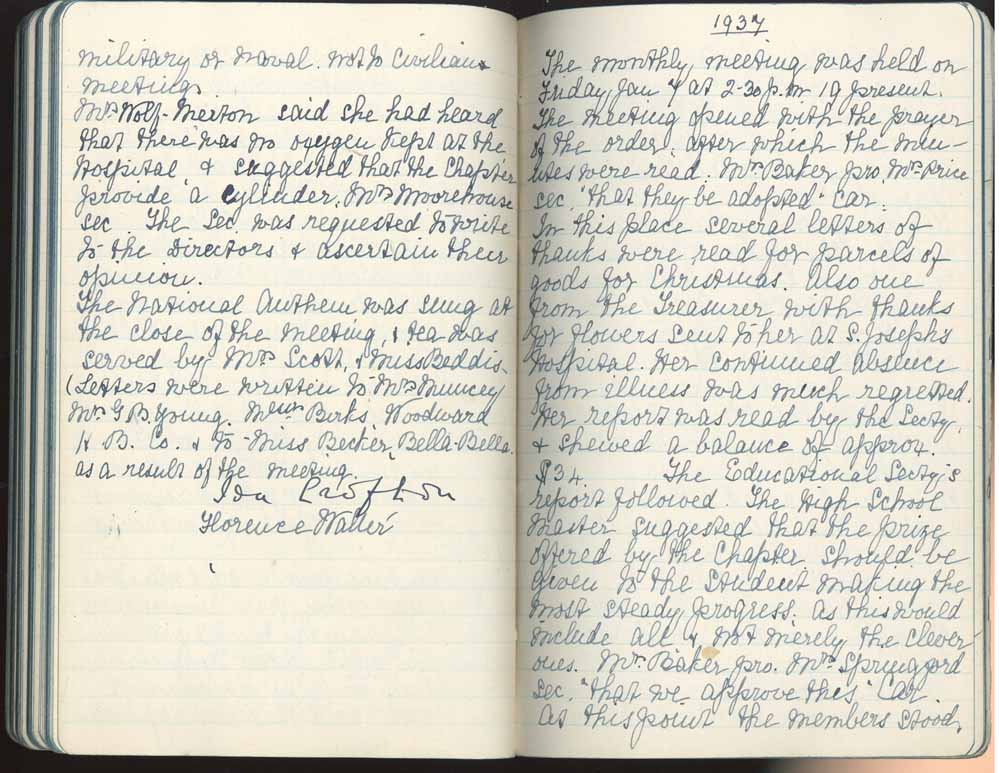 military or naval. not to civilian
meetings.
Mrs Wolf-Merton said she had heard
that there was no oxygen kept at the
Hospital & suggested that the Chapter
provide a cylinder, Mrs Moorehouse
sec. The Sec. was requested to write
to the Directors & ascertain their
opinion.
The National Anthem was sung at
the close of the meeting, & tea was
served by Mrs Scott, & Miss Beddis.
(Letters were written to Mrs Muncey
Mrs G. B. Young. Messrs Birks, Woodward
H. B. Co. & to Miss Becker, Bella-Bella
as a result of the meeting.
Ida Crofton
Florence Walter
1937
The monthly meeting was held on
Friday, Jan 7 at 2-30 p.m 19 present.
The meeting opened with the prayer
of the order, after which the min-
utes were read. Mrs Baker pro. Mrs Price
sec. "that they be adopted" Car.
In this place several letters of
thanks were read for parcels of
goods for Christmas. Also one
from the Treasurer with thanks
for flowers sent to her at S. Joseph's
Hospital. Her continued absence
from illness was much regretted.
Her report was read by the Secty,
& shewed a balance of approx.
$34. The Educational Secty's
report followed. The High School
Master suggested that the prize
offered by the Chapter should be
given to the student making the
most steady progress. as this would
include all & not merely the clever
ones. Mrs. Baker pro. Mrs Springford
sec. "that we approve this" Car.
At this point the members stood,